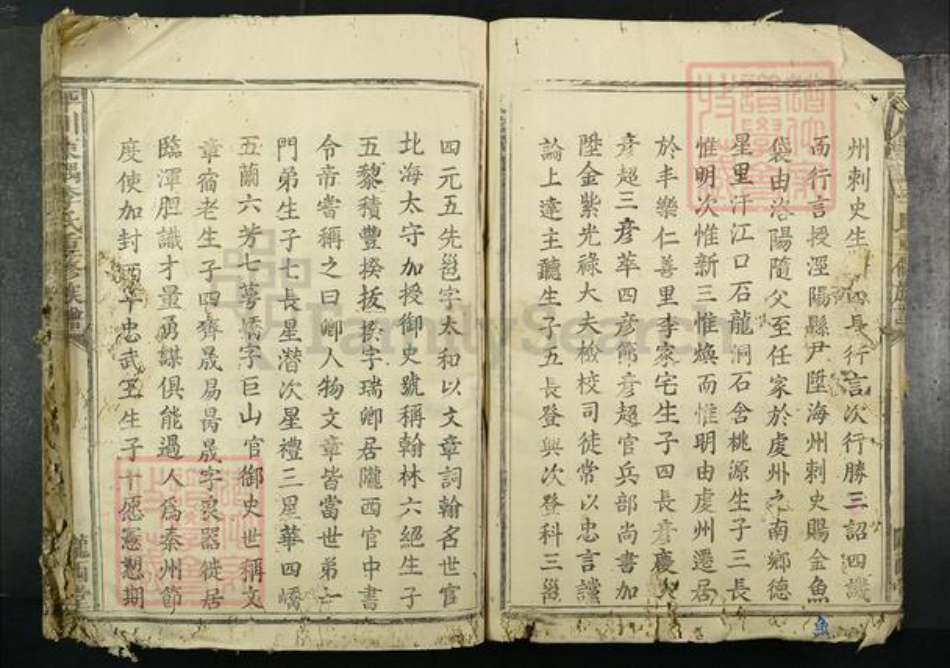 州刺史生 四長行言次行勝三詔四譏
而行言授涇陽縣尹陞海州刺史賜金魚
袋由洛陽隨父至任家於虔州之南鄉德
星里汗江口石龍洞石含桃源生子三長
惟明次惟新三惟煥而惟明由虔州遷居
於丰樂仁善里李家宅生子四長彥慶
彥超三彥華四彥 彥超官兵部尚書加
陞金紫光祿大夫檢校司徒常以忠言讜
論上達主聽生子五長登興次登科三
四元五先邕字太和以文章詞翰名世官
北海太守加授御史號稱翰林六絕生子
五黎積豐揆拔揆字瑞卿居隴西官中書
令帝嘗稱之曰卿人物文章皆當世第一
門弟生子七長星潛次星禮三星華四嶠
五蘭六芳七蕚嶠字巨山官御史世稱文
章宿老生子四齊晟易昺晟字良器徙居
臨潭胆識才量勇謀俱能過人為秦州節
度使加封西平忠武王生子十愿憲愬期
李氏重修族譜
隴西堂
FamilySearch